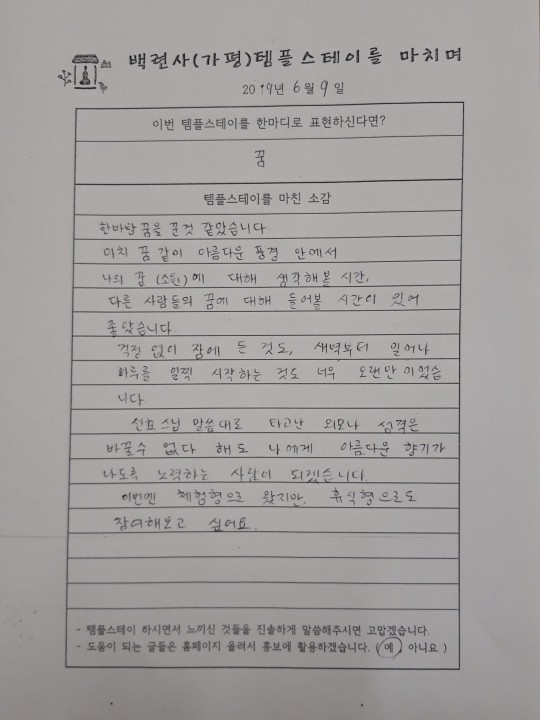 백련사(가평)템플스테이를 마치며
2019년 6월 9일
이번 템플스테이를 한마디로 표현하신다면?
꿈
템플스테이를 마친 소감
한바탕 꿈을 꾼것 같았습니다
마치 꿈 같이 아름다운 풍경 안에서
나의 꿈 (소원)에 대해 생각해볼 시간,
다른 사람들의 꿈에 대해 들어볼 시간이 있어
좋았습니다.
걱정 없이 잠에 든 것도, 새벽부터 일어나
하루를 일찍 시작하는 것도 너무 오랜만이었습
니다.
선효스님 말씀대로 타고난 외모나 성격은
바꿀수 없다 해도 나에게 아름다운 향기가
나도록 노력하는 사람이 되겠습니다.
이번엔 체험형으로 왔지만, 휴식형으로도
참여해보고 싶어요.
- 템플스테이 하시면서 느끼신 것들을 진솔하게 말씀해주시면 고맙겠습니다.
- 도움이 되는 글들은 홈페이지 올려서 홍보에 활용하겠습니다. (예, 아니요)